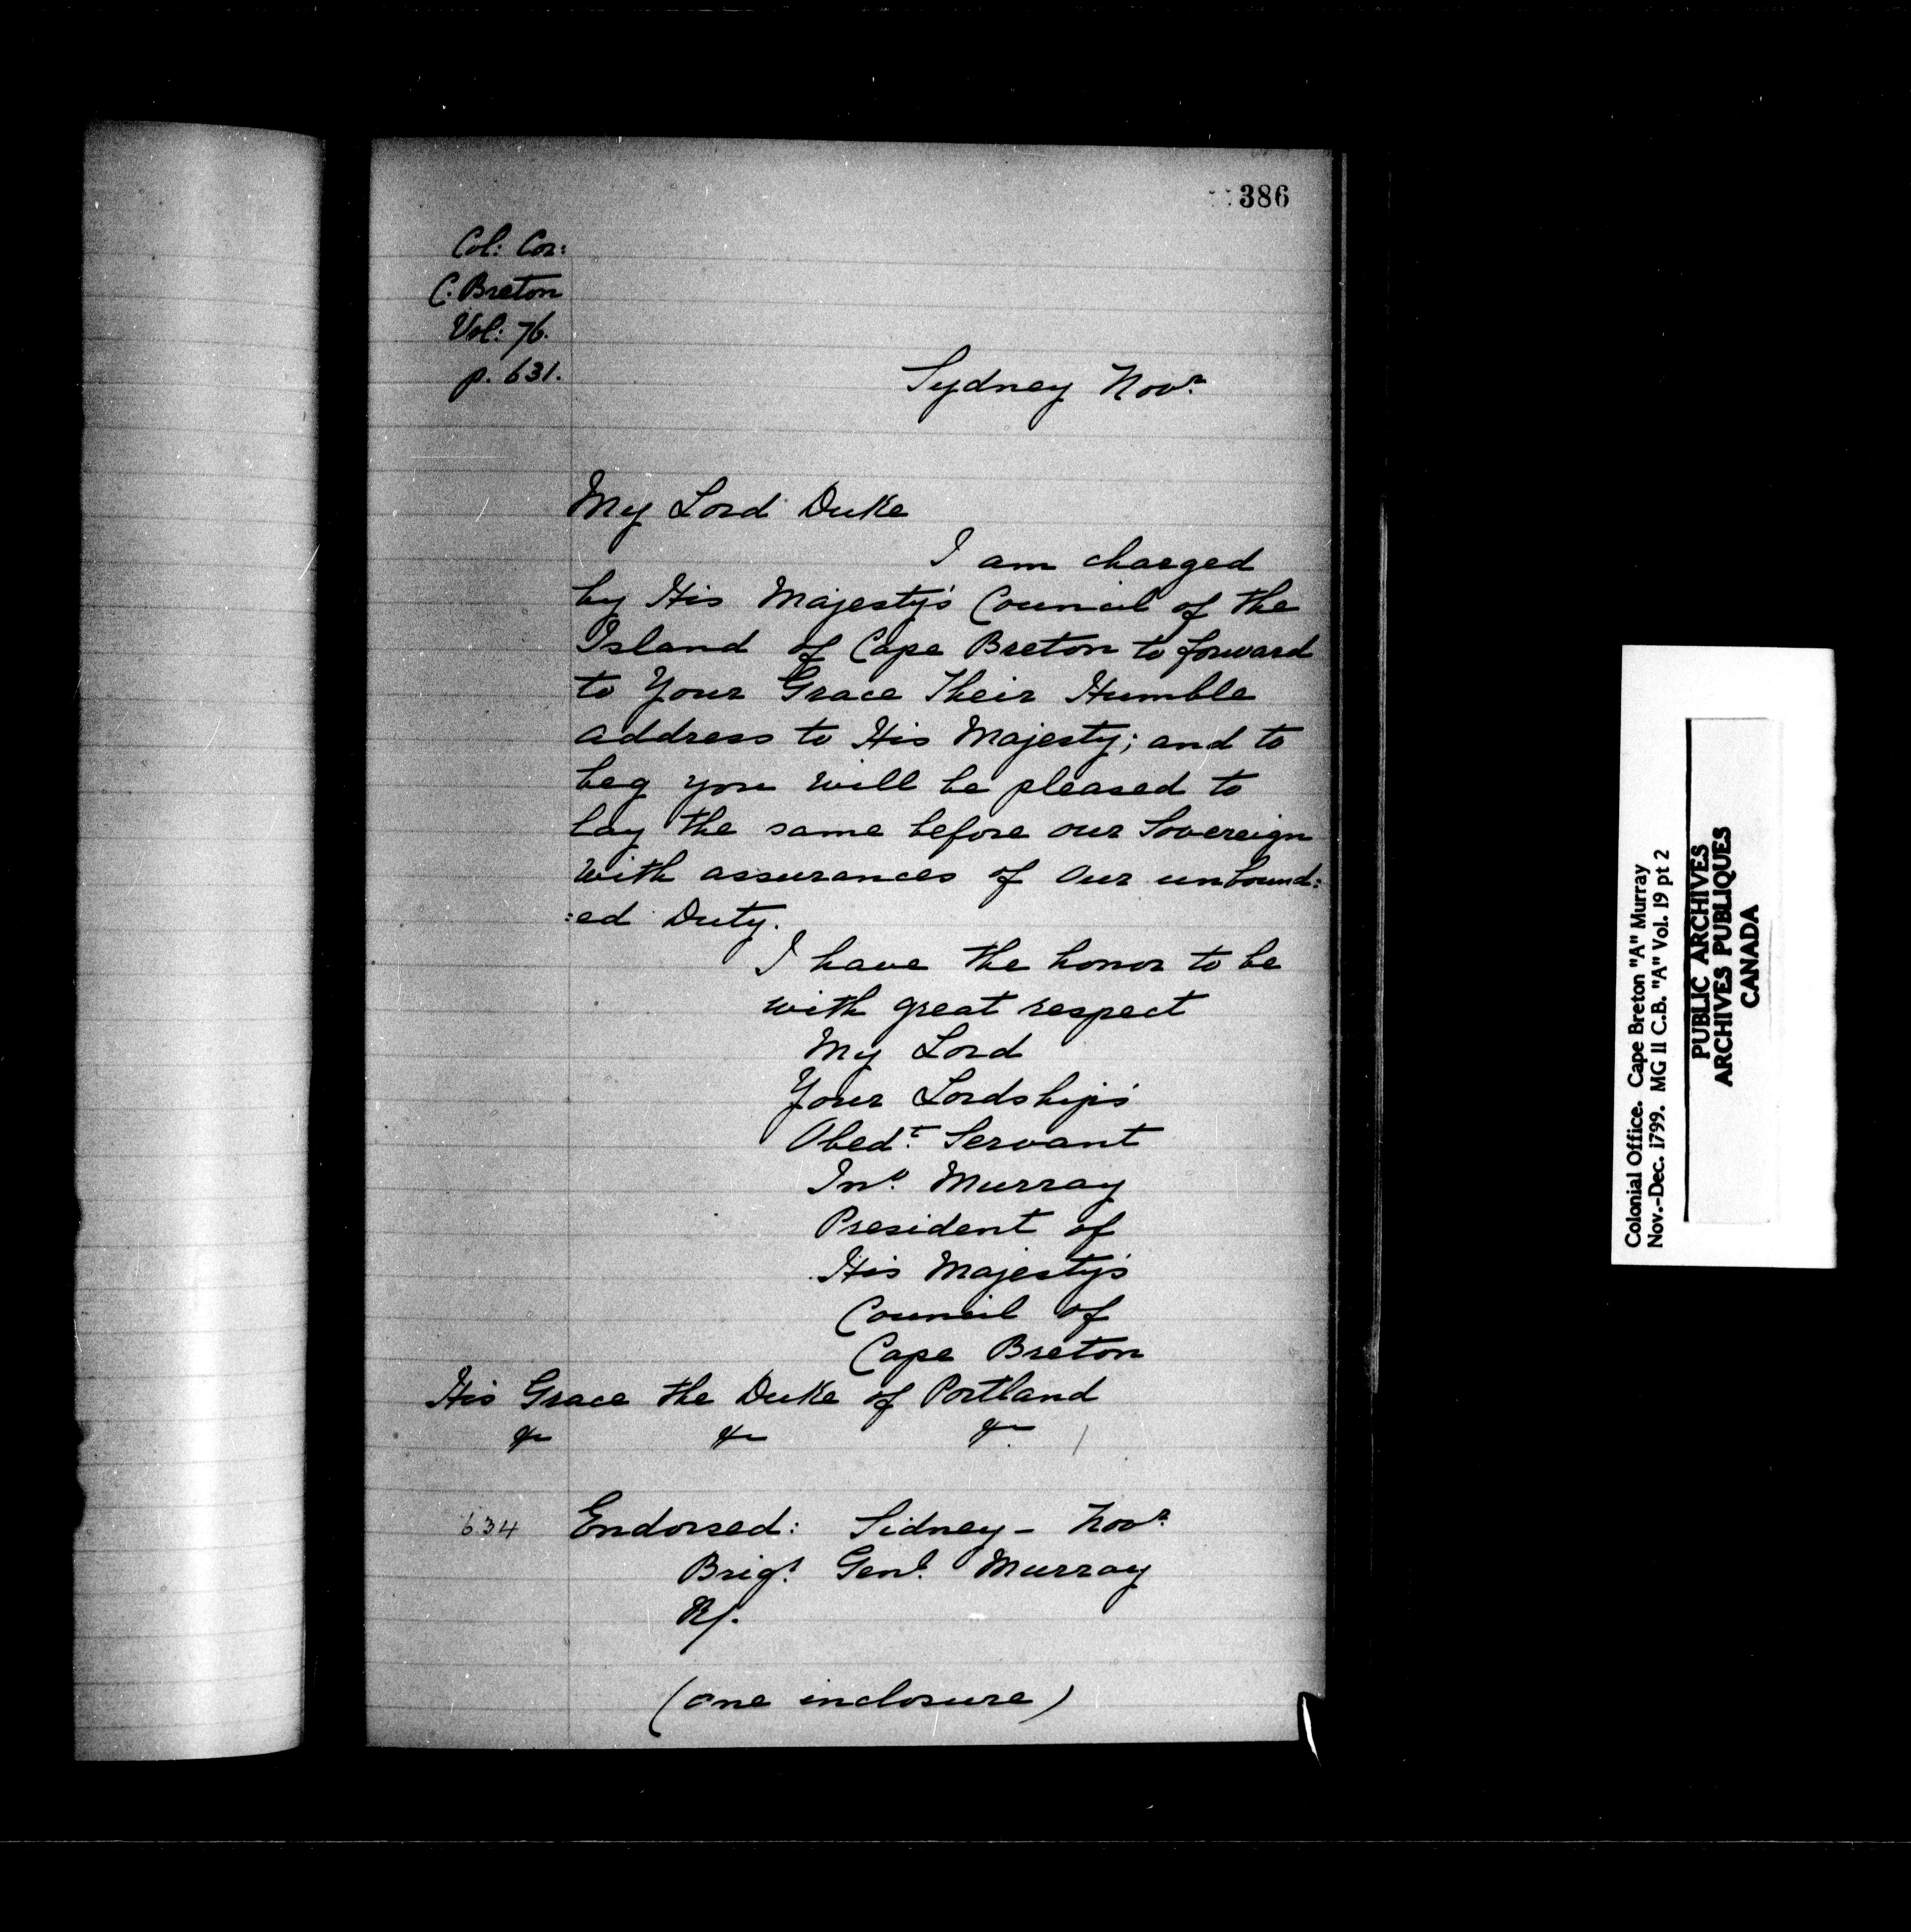 386
Col: Cor:
C. Breton
Vol: 76.
p. 631.
Sydney Novr.
My Lord Duke
I am charged
by His Majesty's Council of the
Island of Cape Breton to forward
to Your Grace Their Humble
address to His Majesty; and to
beg you will be pleased to
lay the same before our Sovereign
with assurances of our unbound:
:ed Duty.
I have the honor to be
with great respect
My Lord
Your Lordship's
Obedt. Servant
Jno. Murray
President of
His Majesty's
Council of
Cape Breton
His Grace the Duke of Portland
&c &c &c
634 Endorsed: Sidney - Novr.
Brigr. Genl. Murray
R/.
(one inclosure)
Colonial Office. Cape Breton "A" Murray
Nov.-Dec. 1799. MG 11 C.B. "A" Vol. 19 pt 2
PUBLIC ARCHIVES
ARCHIVES PUBLIQUES
CANADA